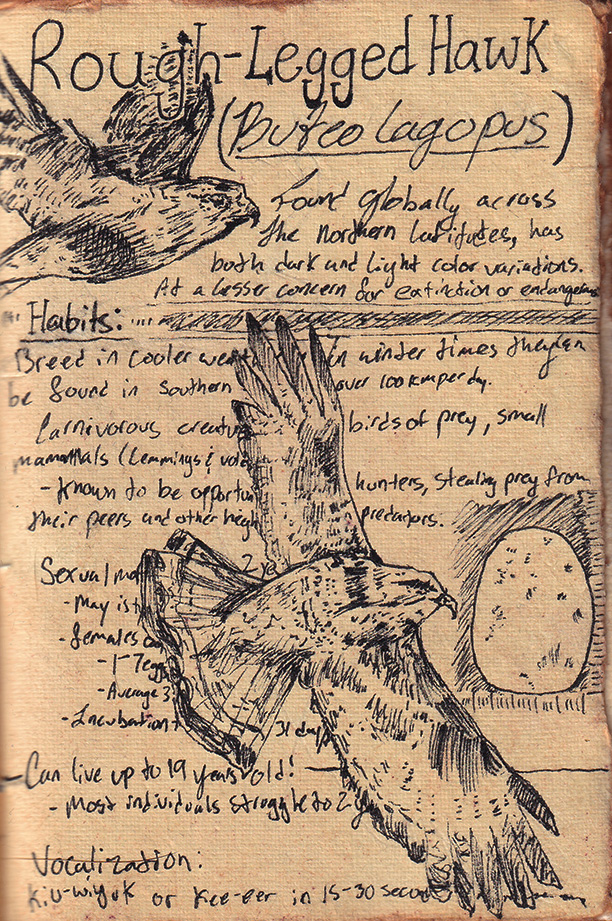 Rough-Legged Hawk
(Buteo Lagopus)
Found globally across
the northern latitudes, has
both dark and light color variations.
At a lesser concern for extinction or
Habits:
Breed in cooler in winter times they can
be found in Southern over 100km per dy.
Carnivorous birds of prey, small
mammals (Lemmings &
- Known to be hunters, stealing prey from
their peers and other high predators.
Sexual
- May is
- females
- 1-7 egg
- Average 3
- Incubation 31 days
- Can live up to 19 years old!
- Most individuals struggle to 2
Vocalization:
Kiu-wiyuk or Kee-eer in 15-30